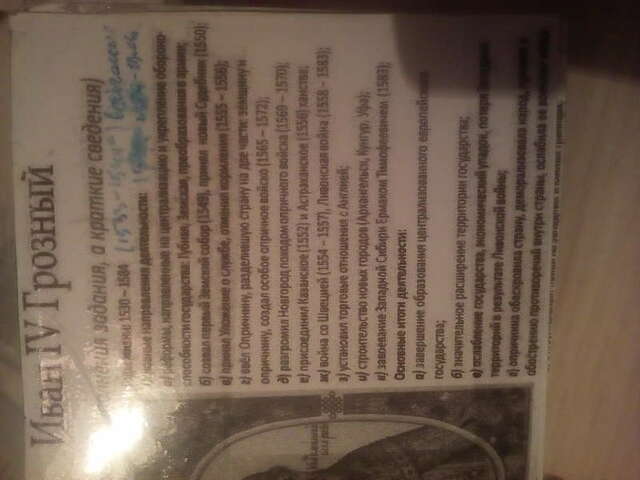 Иван IV Грозный
задания, а краткие сведения)
1530 – 1584 (1533-
направления деятельности:
реформы, направленные на централизацию и укрепление обороно-
способности государства: Губная, Земская, преобразования в армии;
б) созвал первый Земский собор (1549), принял новый Судебник (1550);
в) принял Уложение о службе, отменил кормления (1555 – 1556);
г) ввёл Опричнину, разделившую страну на две части: земщину и
опричнину, создал особое опричное войско (1565 – 1572);
д) разгромил Новгород походом опричного войска (1569 – 1570);
е) присоединил Казанское (1552) и Астраханское (1556) ханства;
ж) война со Швецией (1554 – 1557), Ливонская война (1558 – 1583);
з) установил торговые отношения с Англией;
и) строительство новых городов (Архангельск, Кунгур, Уфа);
к) завоевание Западной Сибири Ермаком Тимофеевичем (1583);
Основные итоги деятельности:
а) завершение образования централизованного европейского
государства;
б) значительное расширение территории государства;
в) ослабление государства, экономический упадок, потеря
территорий в результате Ливонской войны;
г) опричнина обескровила страну, деморализовала народ,
обострению противоречий внутри страны, ослабила её